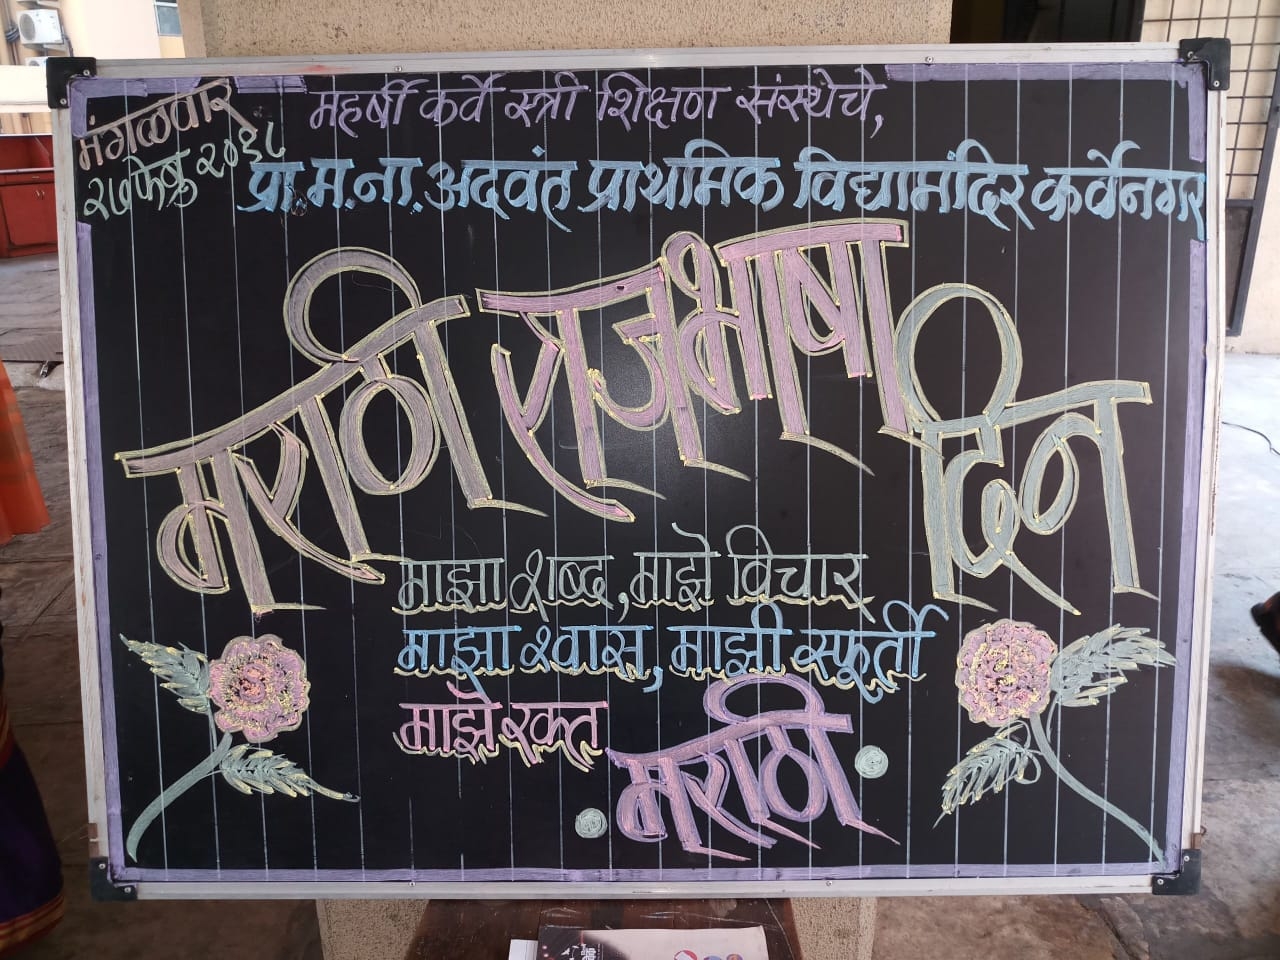 मंगळवार
२७फेब्रु २०१८
महर्षी कर्वे स्त्री शिक्षण संस्थेचे,
प्रा.म.ना.अदवंत प्राथमिक विद्यामंदिर कर्वेनगर
मराठी राजभाषा दिन
माझा शब्द, माझे विचार
माझा श्वास, माझी स्फूर्ती
माझे रक्त
मराठी